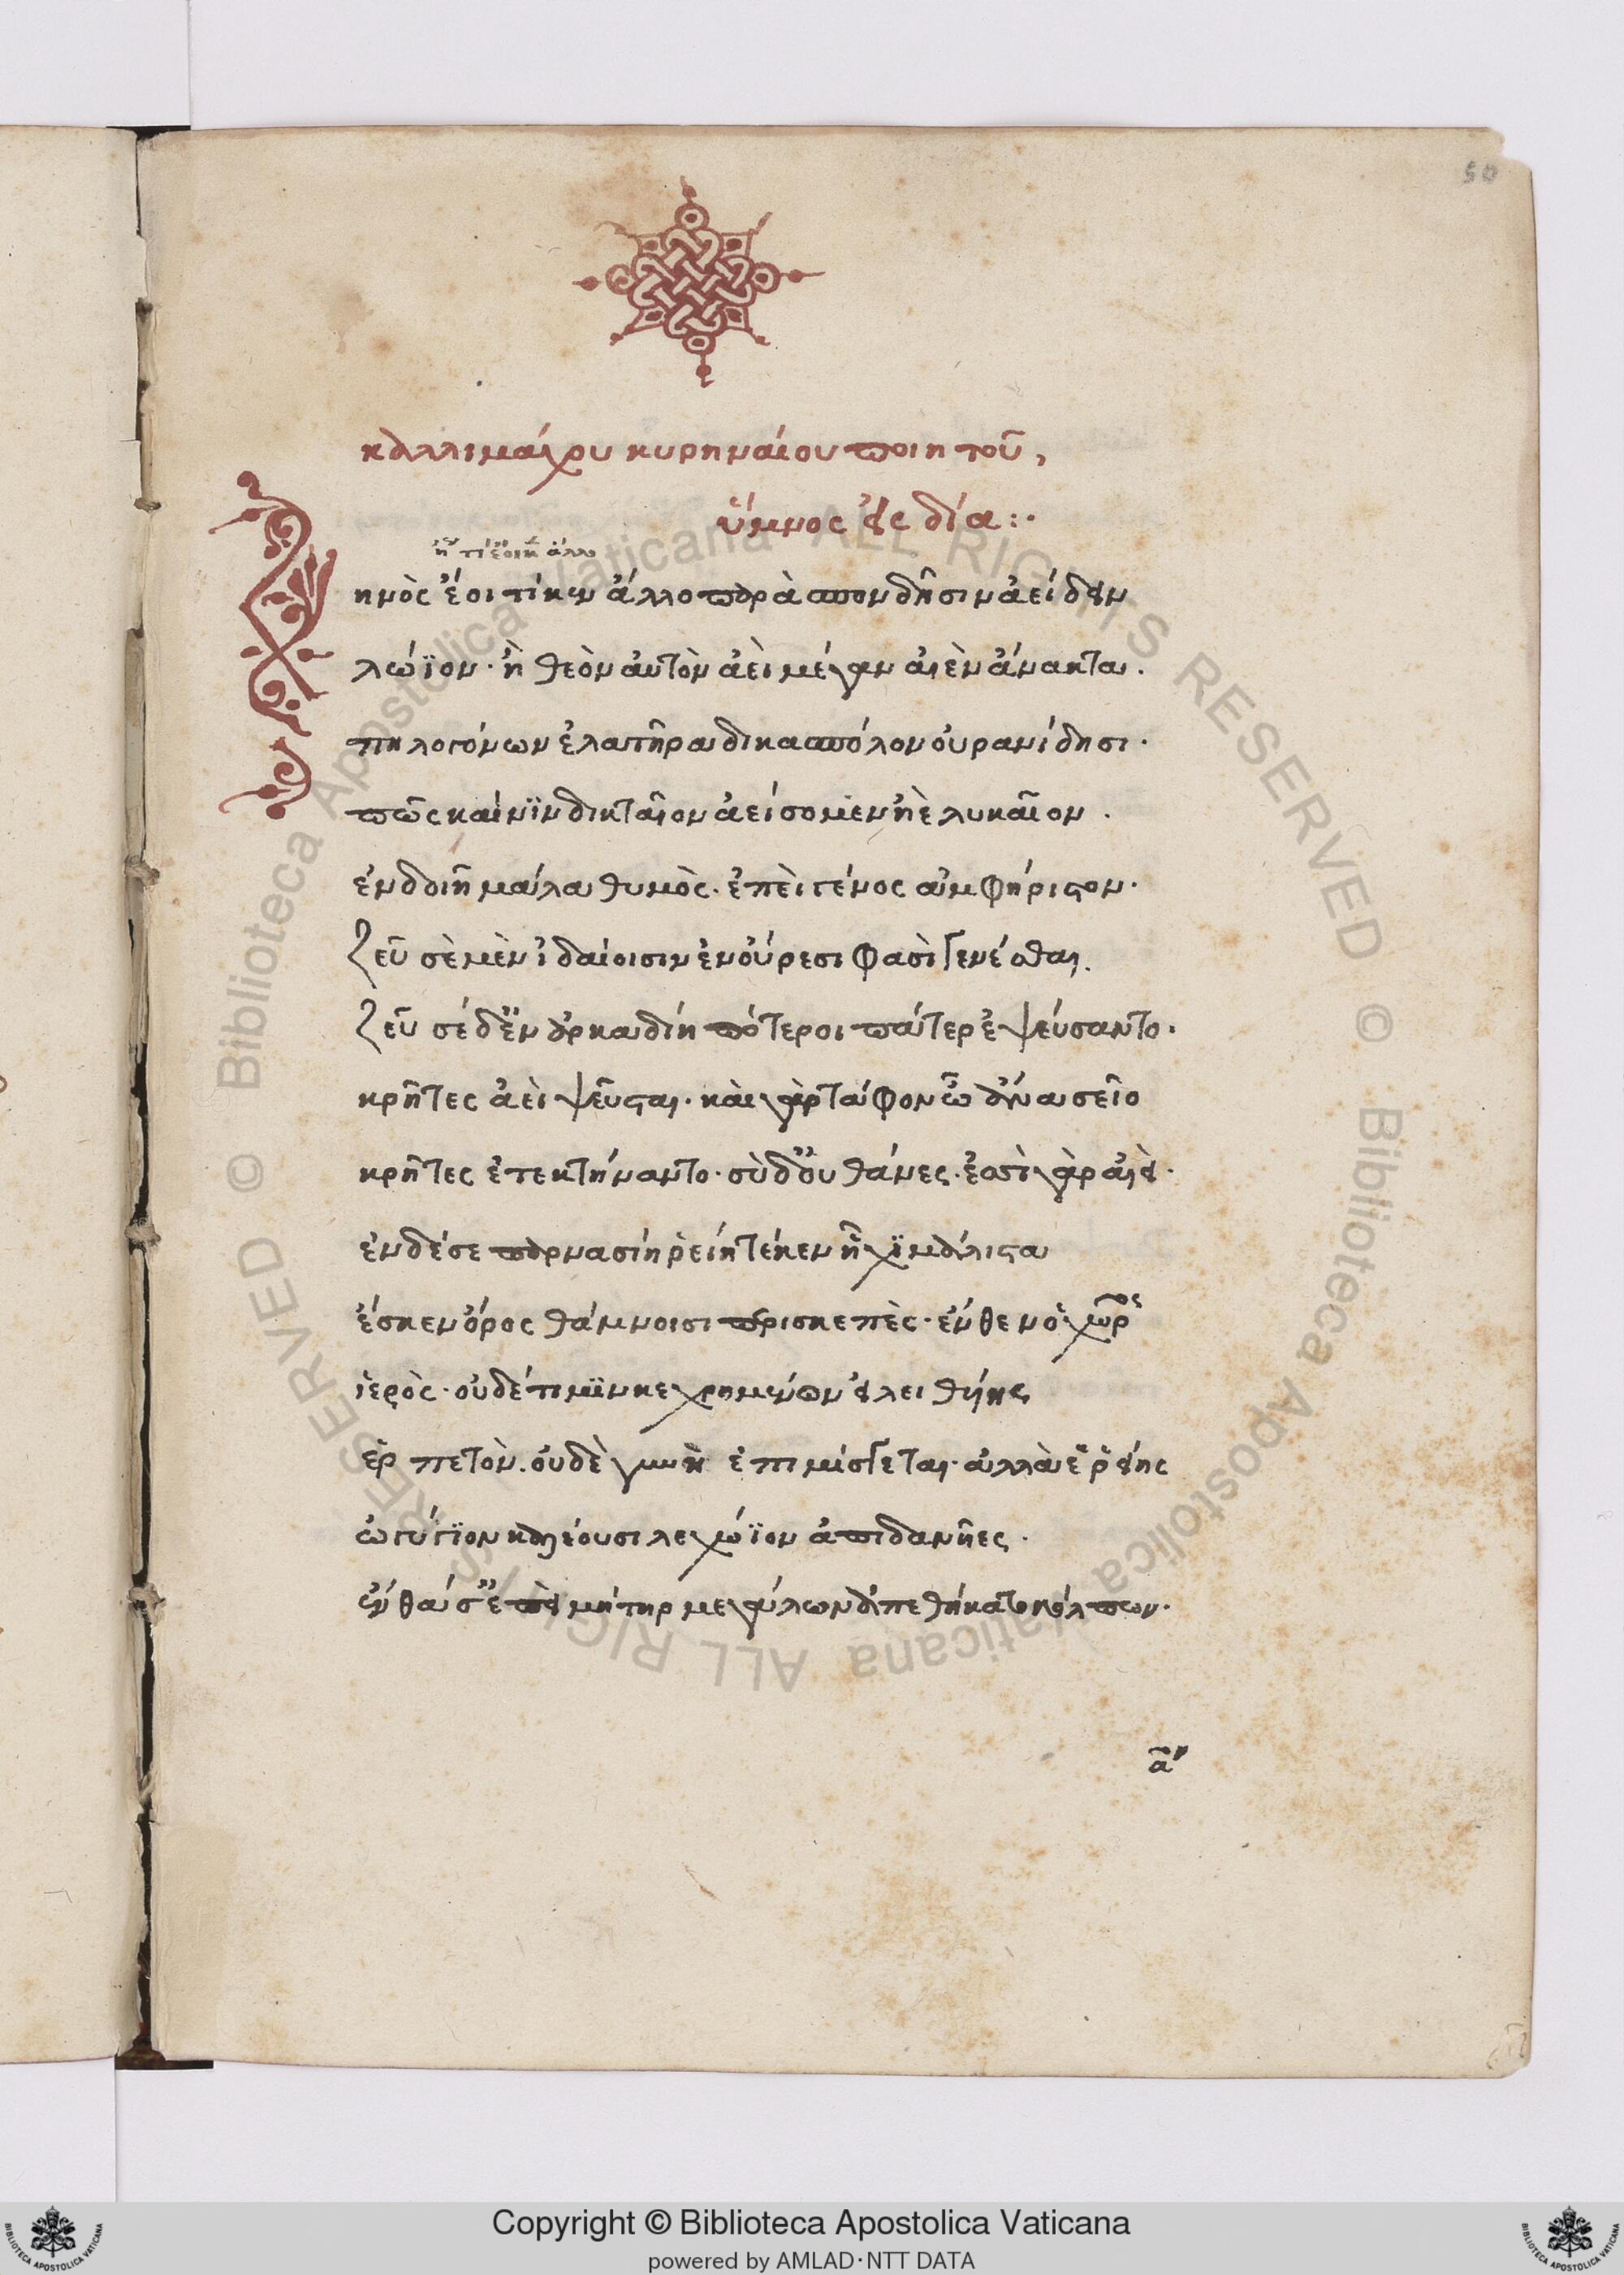 50
καλλιμάχου κυρηναίου ποιητοῦ,
ὕμνος εἰς δία:·
ἢ τί ἔοικεν ἄλλο
Ζηνὸς ἔοι τί κεν ἄλλο παρὰ σπονδῆσιν ἀείδειν
λώϊον· ἢ θεὸν αὐτὸν ἀεὶ μέγαν αἰὲν ἄνακτα.
πηλογόνων ἐλατῆρα δικασπόλον οὐρανίδησι·
πῶς καί νϊν δικταῖον ἀείσομεν ἠὲ λυκαῖον.
ἐν δοιῆ μάλα θυμὸς· ἐπεὶ γένος ἀμφήριστον·
Ζεῦ σὲ μὲν ἰδαίοισιν ἐν οὔρεσι φασὶ γενέσθαι.
Ζεῦ σέ δ' ἐν ἀρκαδίη πότεροι πάτερ ἐψεύσαντο·
κρῆτες ἀεὶ ψεῦσται· καὶ γὰρ τάφον ὦ ἄνα σεῖο
κρῆτες ἐτεκτήναντο· σὺ δ' οὐ θάνες· ἐσσὶ γὰρ αἰεί·
ἐν δέ σε παρνασίη ῥείη τέκεν ἧχϊ μάλιστα
ἔσκεν ὄρος θάμνοισι περισκεπὲς· ἔνθεν ὁ χῶρος
ἱερὸς· οὐδέ τι μϊν κεχρημένον εἰλειθύης
ἑρπετὸν. οὐδὲ γυνὴ ἐπιμίσγεται· ἀλλὰ ἑ ῥείης
ὠγύγϊον καλέουσι λεχώϊον ἀπιδανῆες·
ἔνθά σ' ἐπεὶ μήτηρ μεγάλων ἀπεθήκατο κόλπων·